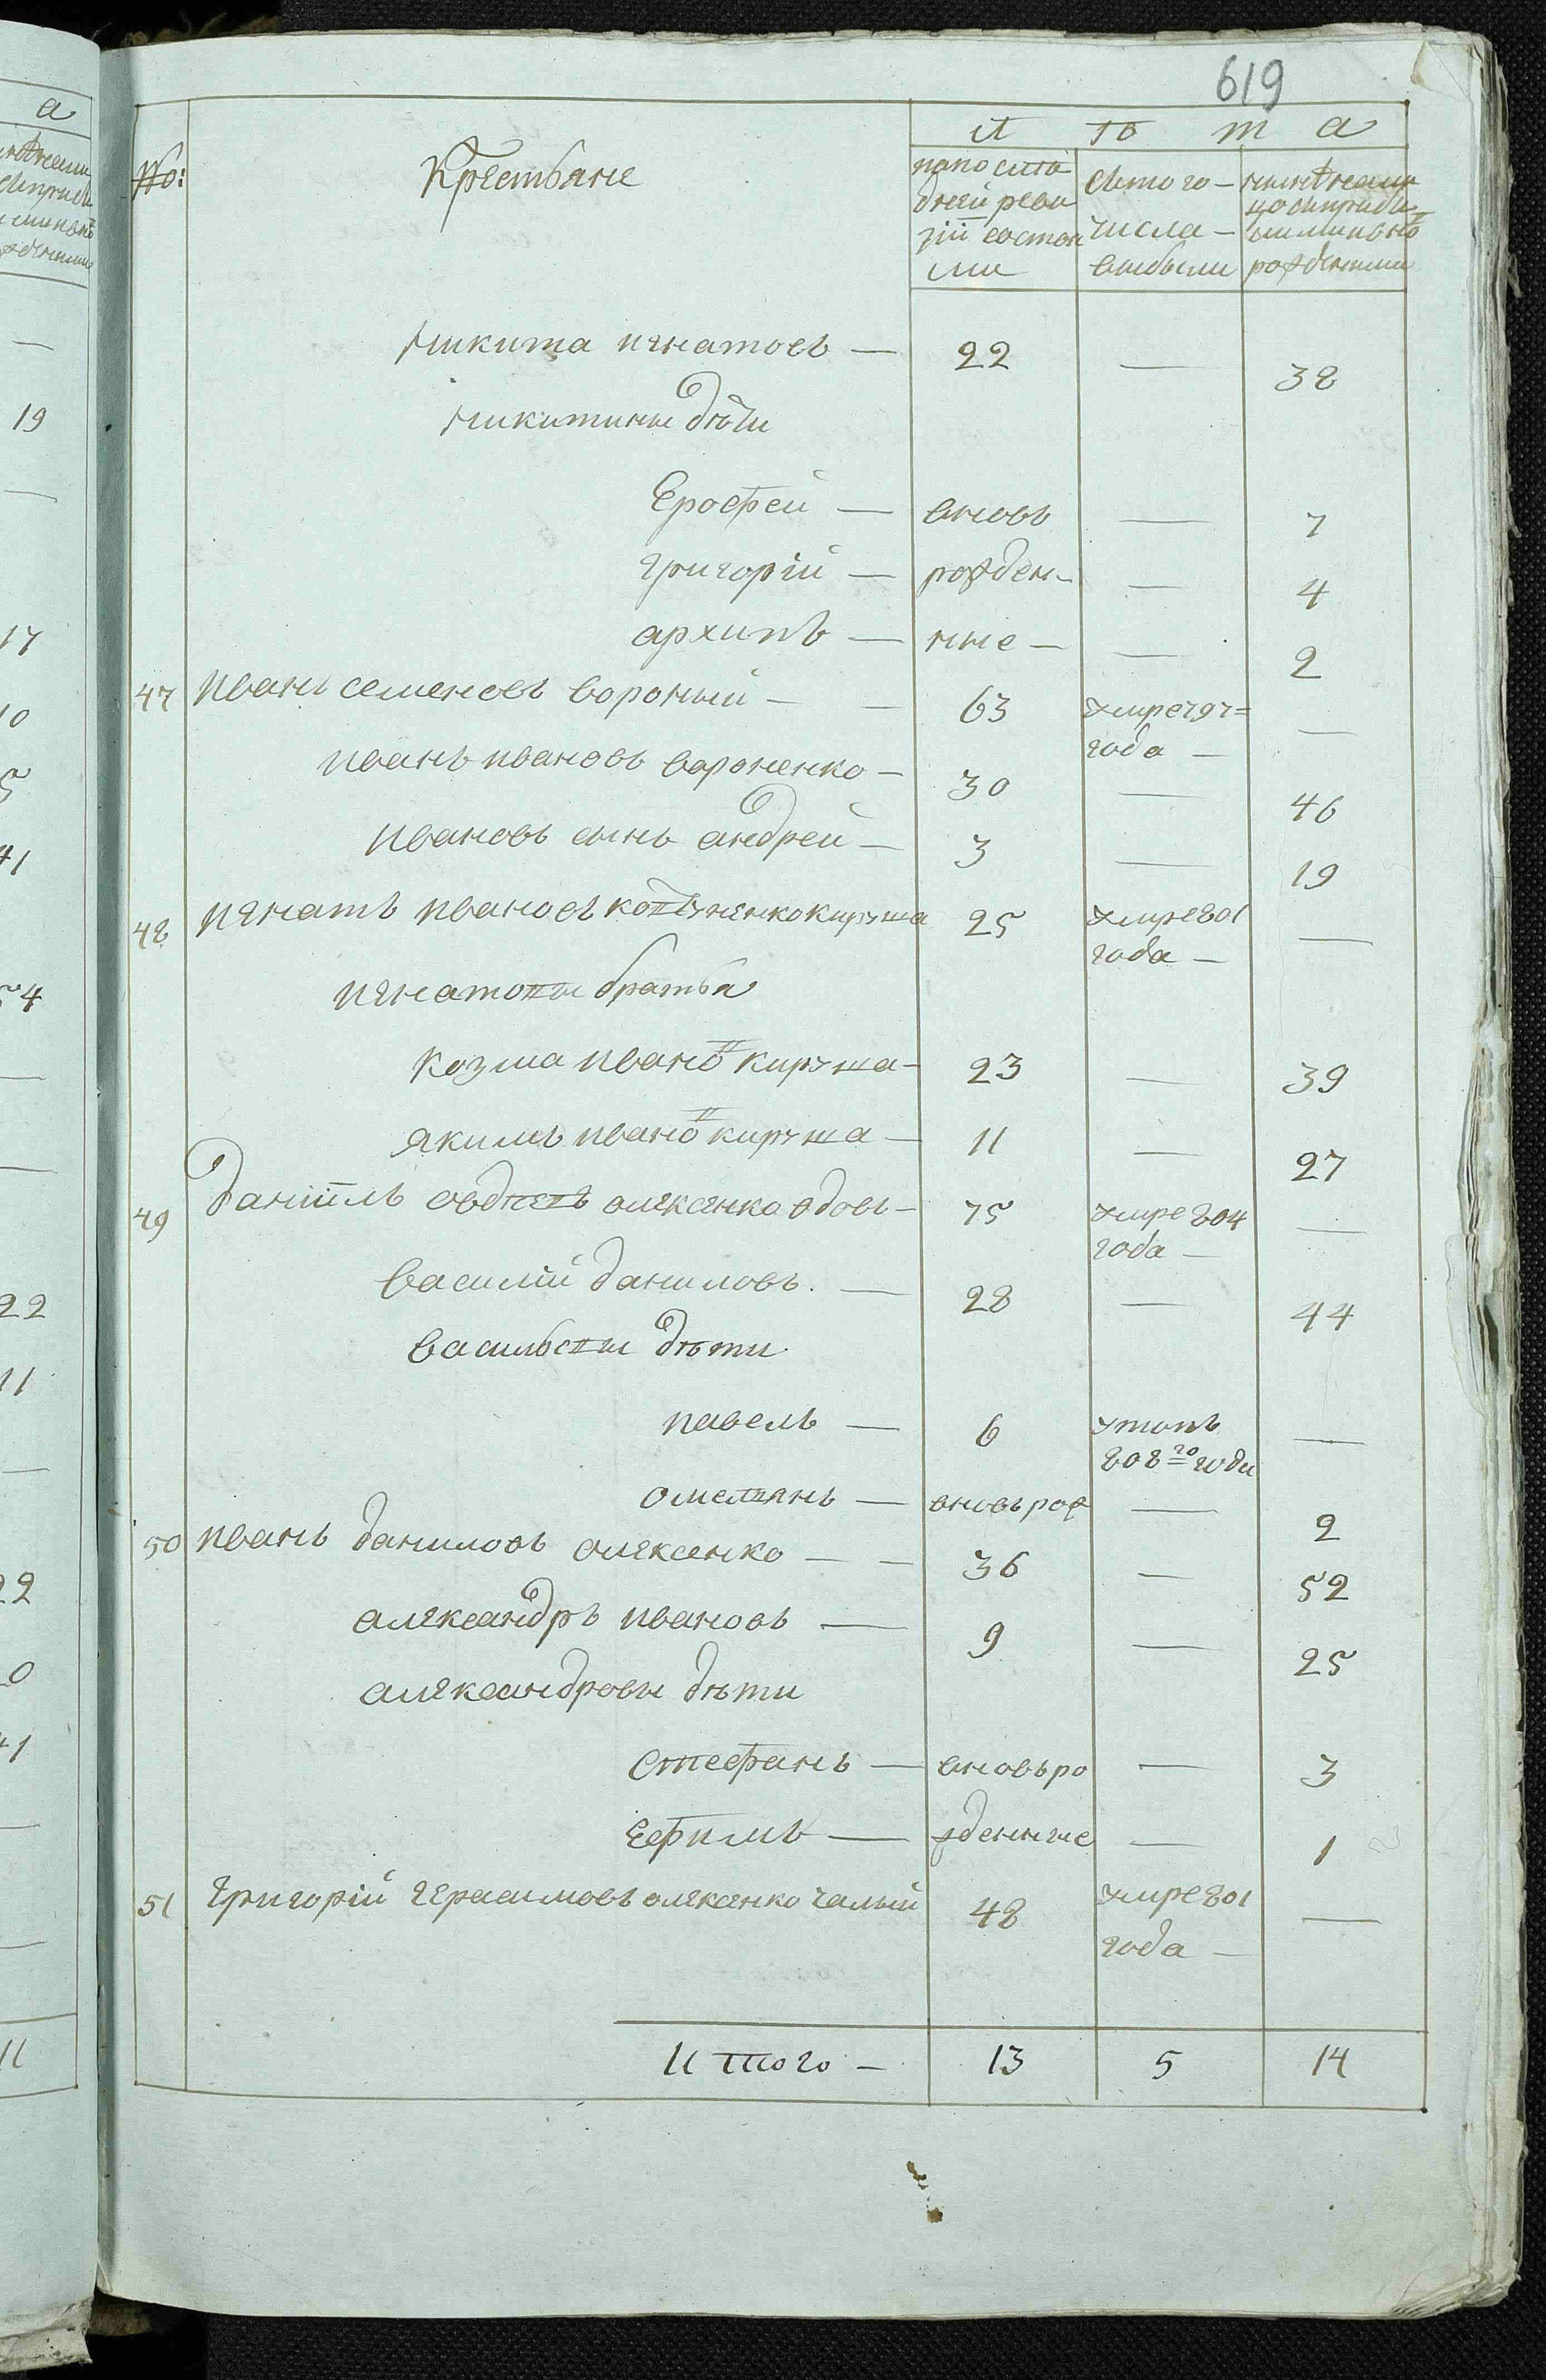 619
№:
Крестьяне
лѣта
по после
дней реви
зіи состоя
ли
Изъ того —
числа —
выбыли
ныне на ли
цо с прибы
лыми и вно
рожденными
Никита Игнатовъ — 22 — 38
Никитины дѣти
Ерофей — вновь — 7
Григорій — рожден- — 4
Архипъ — ные — — 2
47 Иванъ Семеновъ Вороный — — 63 умре 797= —
года —
Иванъ Ивановъ Вороненко — 30 — 46
Ивановъ сынъ Андрей — 3 — 19
48 Игнатъ Ивановъ Кируша 25 умре 801 —
года —
Игнатовы братья
Козма Ивановъ Кируша — 23 — 39
Якимъ Ивановъ Кируша — 11 — 27
49 Даніилъ Авдѣевъ Олексенко вдовъ — 75 умре 804 —
года —
Василій Даниловъ. — 28 — 44
Васильевы дѣти
Павелъ — 6 утопъ —
808го году
Омелянъ — вновь рож — 2
50 Иванъ Даниловъ Олексенко — — 36 — 52
Александръ Ивановъ — 9 — 25
Александровы дѣти
Стефанъ — вновь ро — 3
Ефимъ — жденные — 1
51 Григорій Герасимовъ Олексенко Чалый 48 умре 801 —
года —
Итого — 13 5 14
а
19
17
10
5
41
54
22
11
22
0
41
11